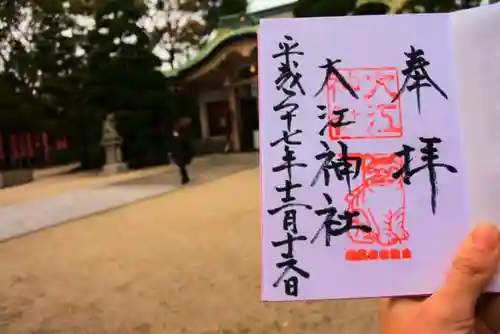 奉拝
大江神社
平成二十七年十二月十六日
大江